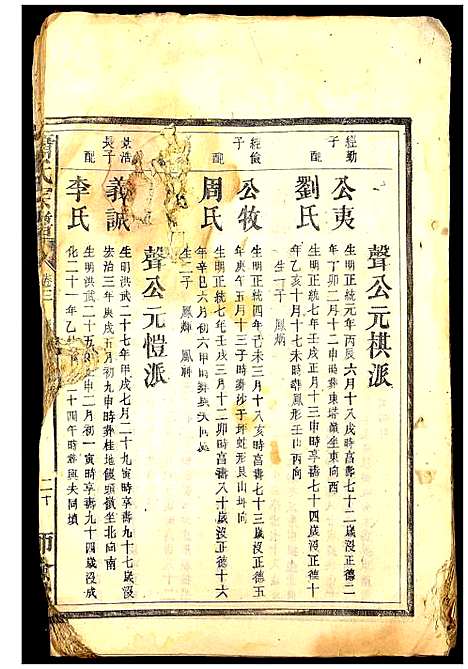 聲公元棋派
經勤
子
公夷
生明正統元年丙辰六月十八戌時富壽七十二歲沒正德二
年丁卯二月十二申時葬東塔嶺坐東向西
配
劉氏
生明正統七年壬戌正月十三申時享壽七十四歲沒正德十
年乙亥十月十七未時葬鳳形壬山丙向
生一子 鳳炳
經儉
子
公牧
生明正統四年己未三月十八亥時富壽七十三歲沒正德五
年庚午五月十三子時葬沙子坪蛇形艮山
配
周氏
生明正統七年壬戌三月十二卯時富壽八十歲沒正德十六
年辛巳六月初六申時葬與夫同向
生二子 鳳輝 鳳
聲公元愷派
景浩
長子
義誠
生明洪武二十七年甲戌七月二十九寅時享壽九十七歲沒
宏治三年庚戌五月初九申時葬桂地饅頭嶺坐北向南
配
李氏
生明洪武二十五年壬申二月初一寅時享壽九十四歲沒成
化二十一年乙巳二十四午時葬與夫同墳
氏宗譜
卷三
二十